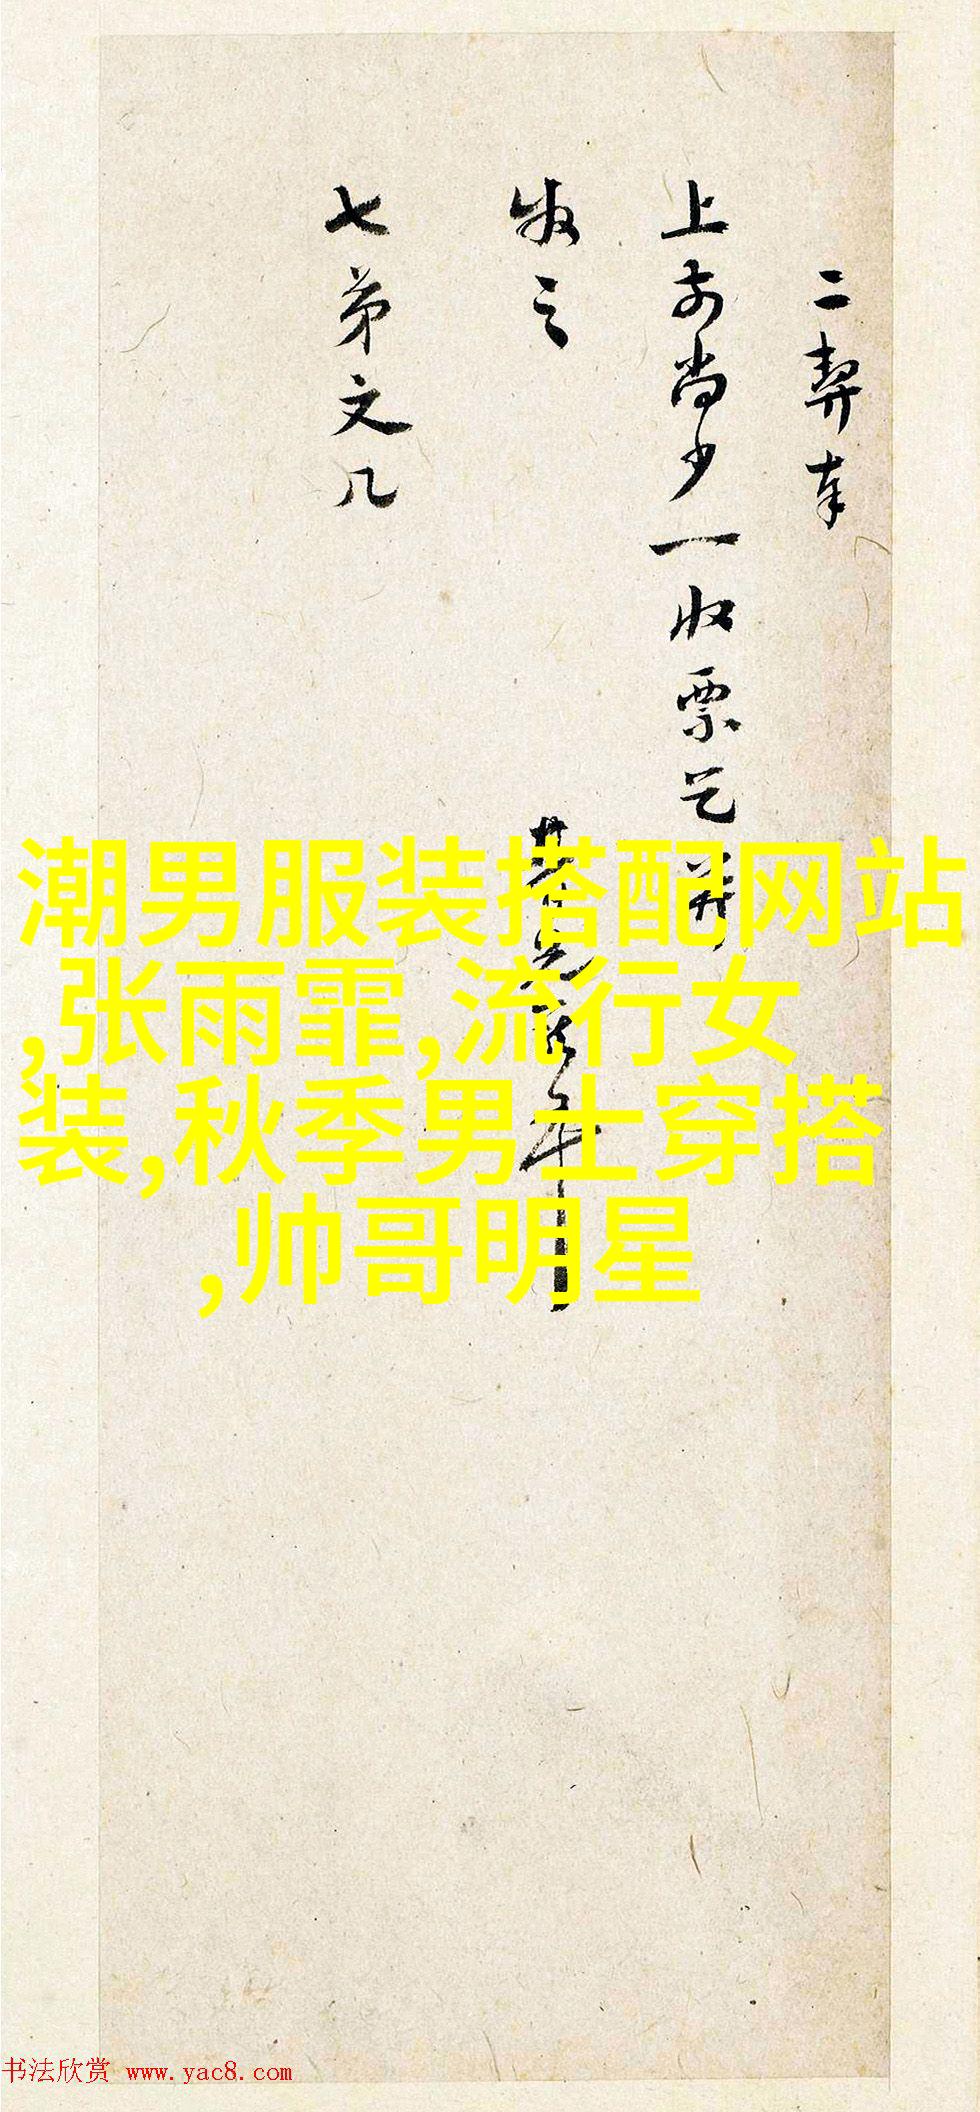 二契奉
上前尚少一收票乞并
收之
七弟文几
潮男服装搭配网站
,张雨霏,流行女
装,秋季男士穿搭
,帅哥明星
书法欣赏 www.yac8.com